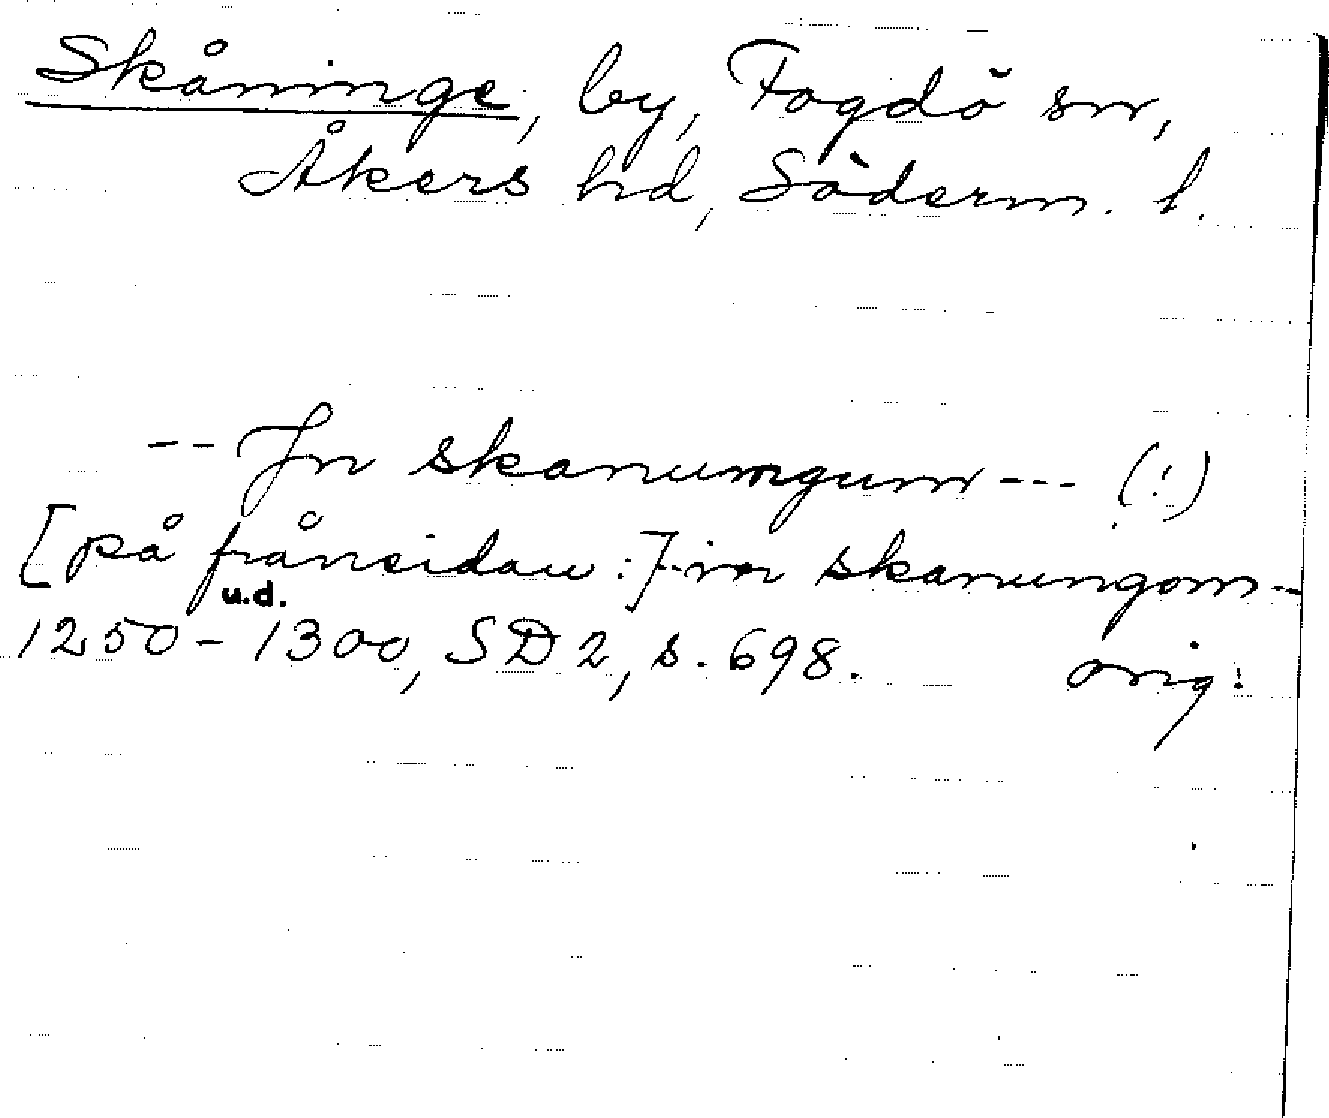 Skåninge, by, Fogdö sn,
Åkers hd, Söderm. l.
-- Jn skanumgum --- (!)
[på frånsidan :] -- in skanungom --
u.d.
1250-1300, SD 2, s. 698. orig.